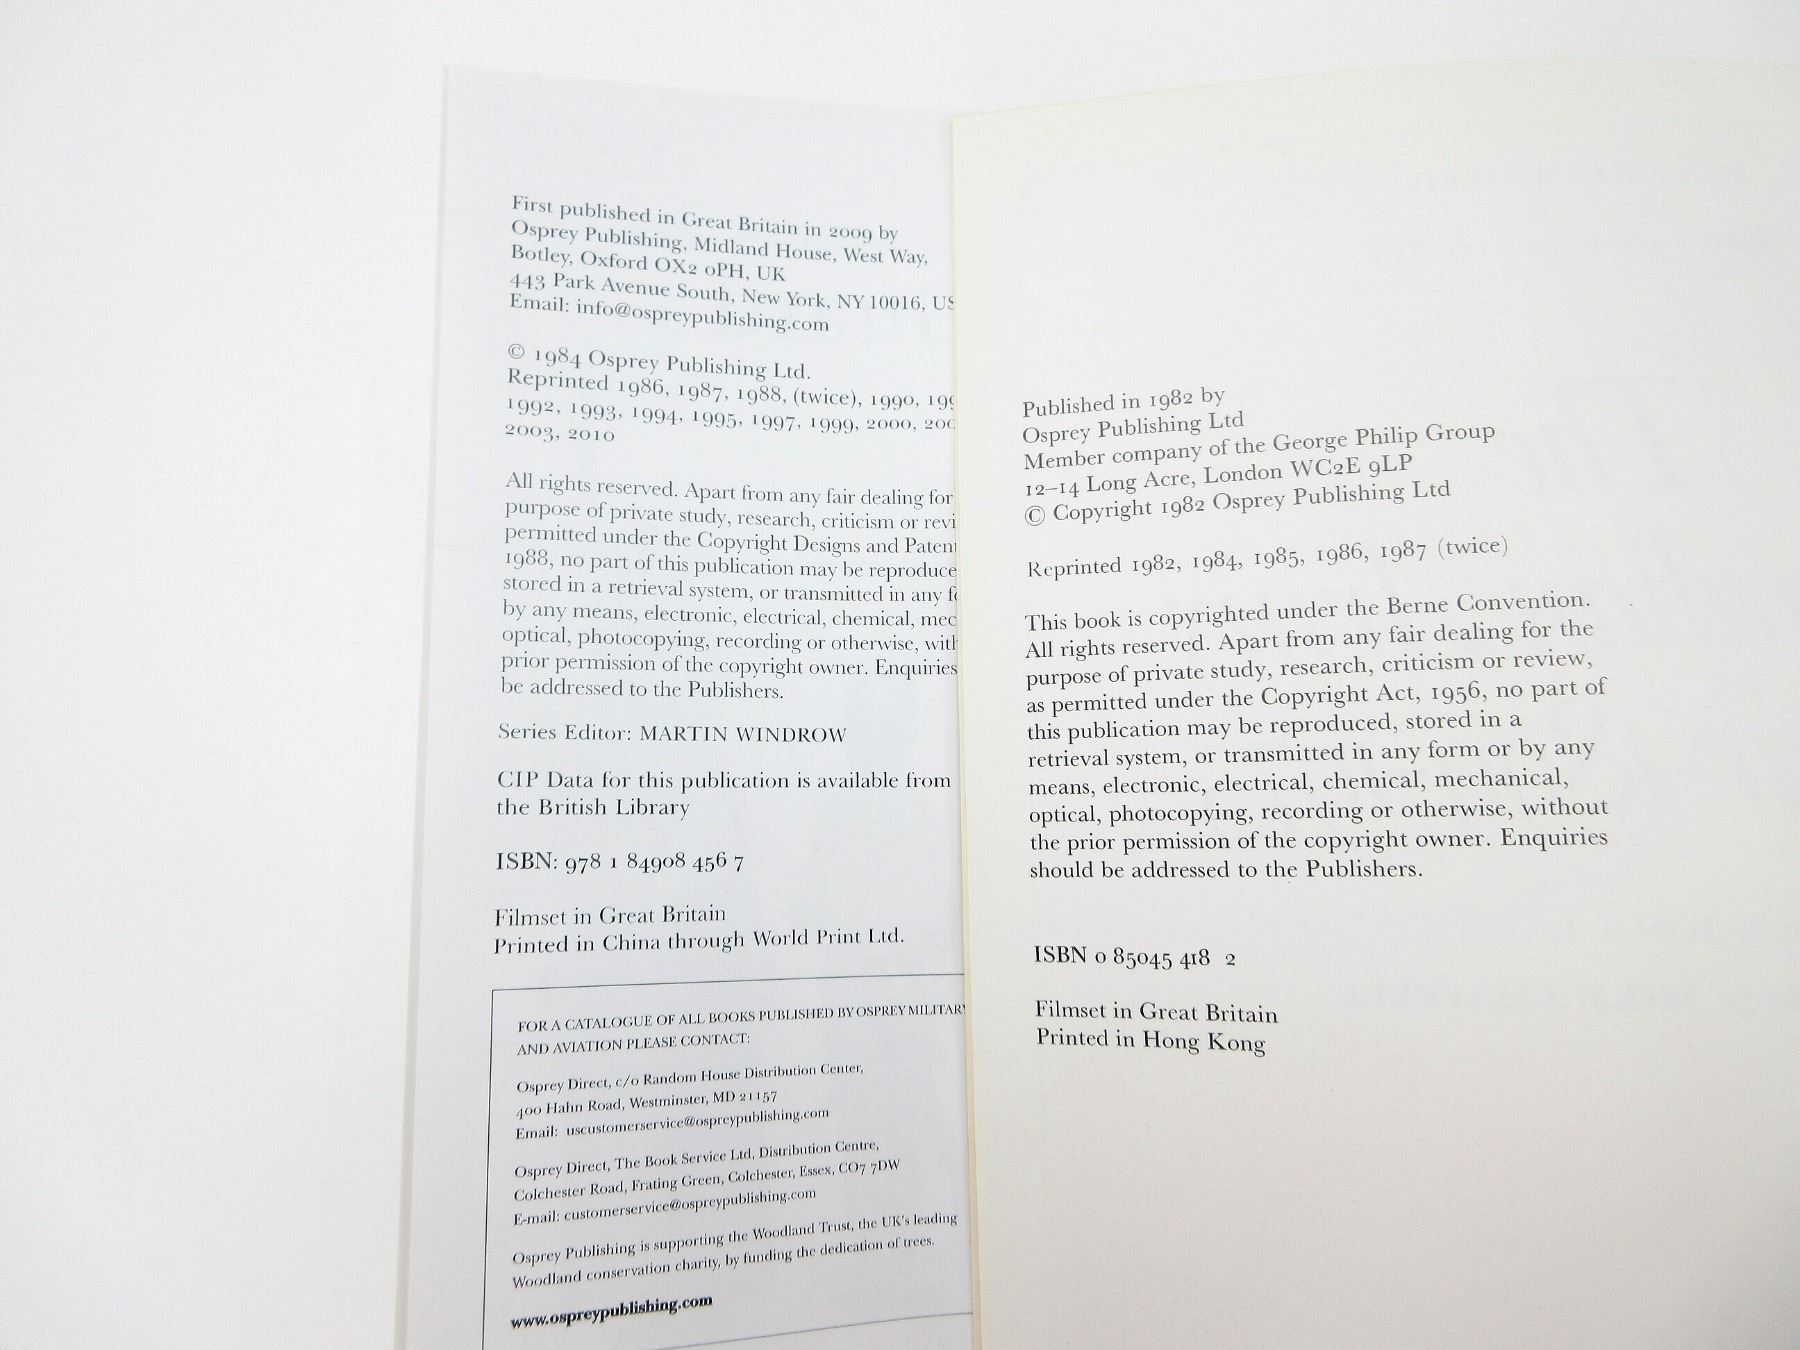 First published in Great Britain in 2009 by
Osprey Publishing, Midland House, West Way,
Botley, Oxford OX2 0PH, UK
443 Park Avenue South, New York, NY 10016, US
Email: info@ospreypublishing.com
© 1984 Osprey Publishing Ltd.
Reprinted 1986, 1987, 1988, (twice), 1990,
1992, 1993, 1994, 1995, 1997, 1999, 2000,
2003, 2010
All rights reserved. Apart from any fair dealing for
purpose of private study, research, criticism or revi
permitted under the Copyright Designs and Paten
1988, no part of this publication may be reproduce
stored in a retrieval system, or transmitted in any f
by any means, electronic, electrical, chemical, mec
optical, photocopying, recording or otherwise, wit
prior permission of the copyright owner. Enquiries
be addressed to the Publishers.
Series Editor: MARTIN WINDROW
CIP Data for this publication is available from
the British Library
ISBN: 978 1 84908 456 7
Filmset in Great Britain
Printed in China through World Print Ltd.
FOR A CATALOGUE OF ALL BOOKS PUBLISHED BY OSPREY MILITARY
AND AVIATION PLEASE CONTACT:
Osprey Direct, c/o Random House Distribution Center,
400 Hahn Road, Westminster, MD 21157
Email: uscustomerservice@ospreypublishing.com
Osprey Direct, The Book Service Ltd, Distribution Centre,
Colchester Road, Frating Green, Colchester, Essex, CO7 7DW
E-mail: customerservice@ospreypublishing.com
Osprey Publishing is supporting the Woodland Trust, the UK's leading
Woodland conservation charity, by funding the dedication of trees.
www.ospreypublishing.com
Published in 1982 by
Osprey Publishing Ltd
Member company of the George Philip Group
12–14 Long Acre, London WC2E 9LP
© Copyright 1982 Osprey Publishing Ltd
Reprinted 1982, 1984, 1985, 1986, 1987 (twice)
This book is copyrighted under the Berne Convention.
All rights reserved. Apart from any fair dealing for the
purpose of private study, research, criticism or review,
as permitted under the Copyright Act, 1956, no part of
this publication may be reproduced, stored in a
retrieval system, or transmitted in any form or by any
means, electronic, electrical, chemical, mechanical,
optical, photocopying, recording or otherwise, without
the prior permission of the copyright owner. Enquiries
should be addressed to the Publishers.
ISBN 0 85045 418 2
Filmset in Great Britain
Printed in Hong Kong